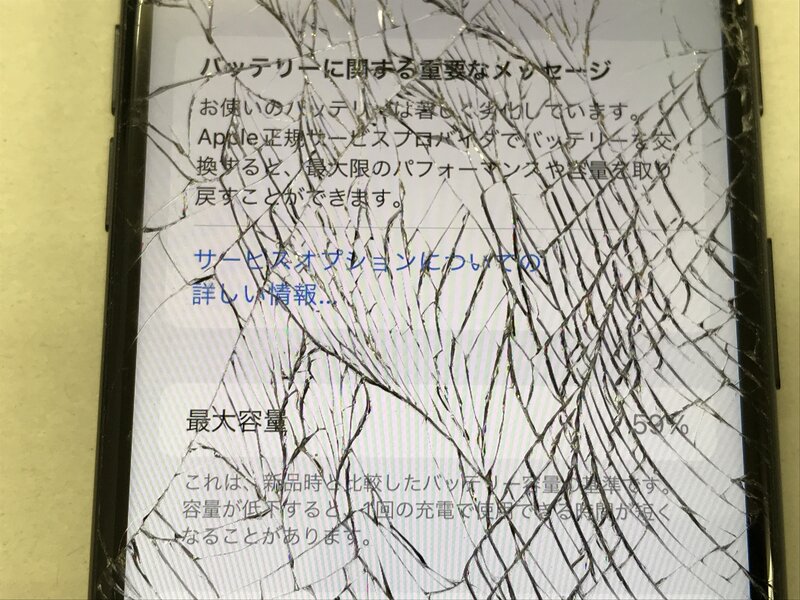 バッテリーに関する重要なメッセージ
お使いのバッテリーは著しく劣化しています。
Apple正規サービスプロバイダでバッテリーを交
換すると、最大限のパフォーマンスや容量を取り
戻すことができます。
サービスオプションについての
詳しい情報...
最大容量 59%
これは、新品時と比較したバッテリー容量の基準です。
容量が低下すると、1回の充電で使用できる時間が短く
なることがあります。